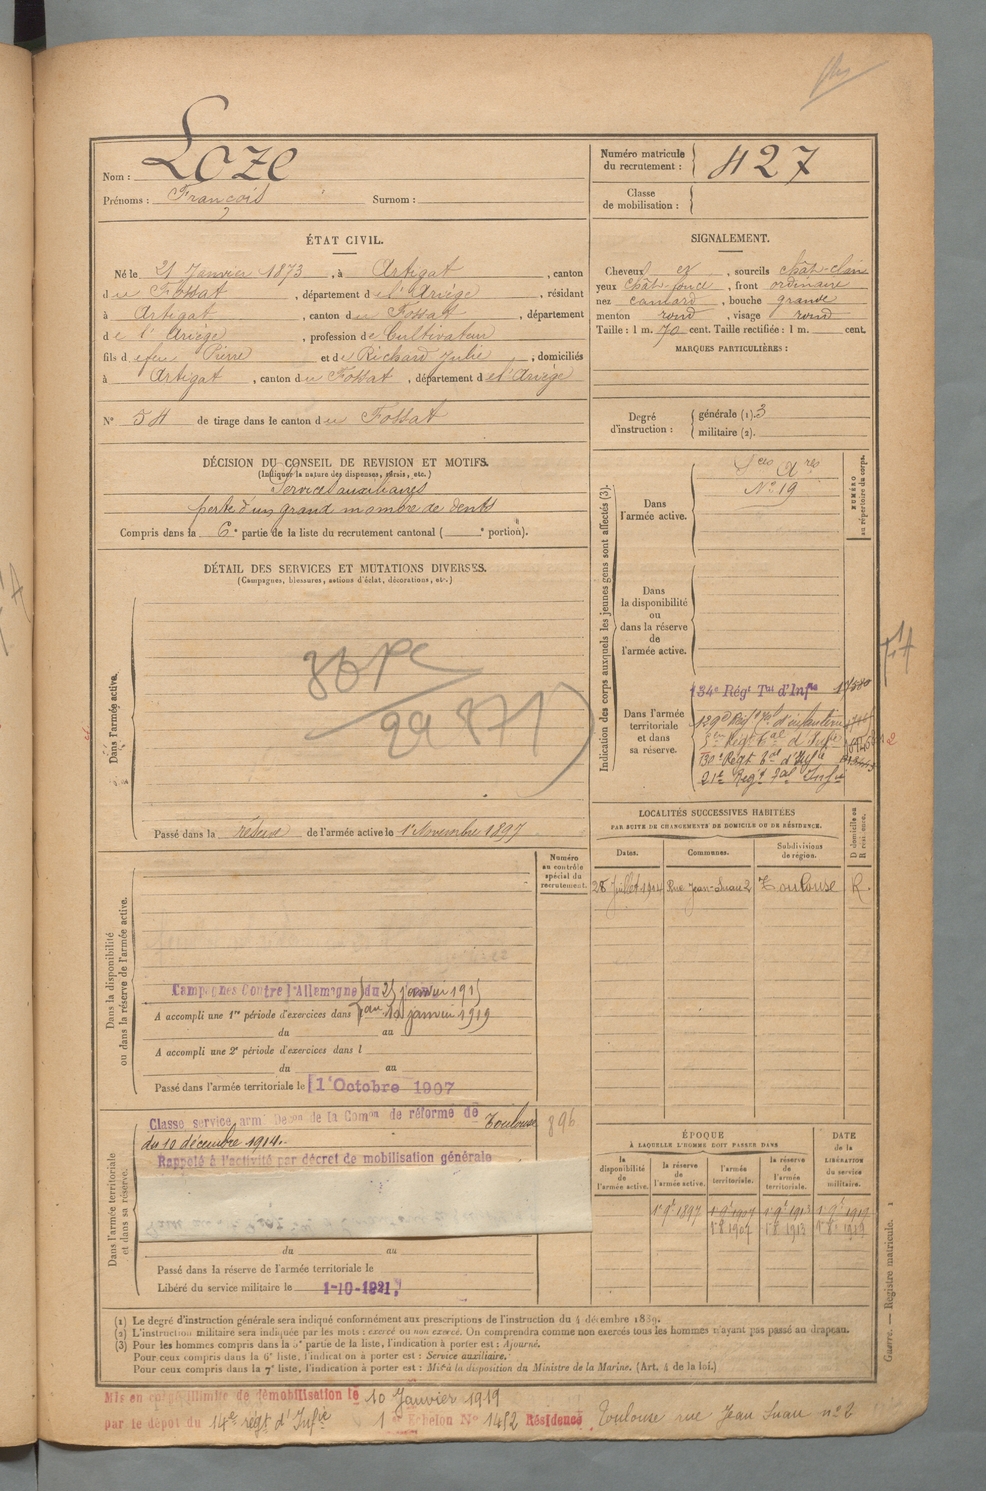 Nom : Loze
Prénoms : François Surnom :
Numéro matricule du recrutement : 427
Classe de mobilisation :
ÉTAT CIVIL.
Né le 21 Janvier 1873, à Artigat, canton
du Fossat, département de l'Ariège, résidant
à Artigat, canton du Fossat, département
de l'Ariège, profession de Cultivateur
fils de feu Pierre et de Richard Julie, domiciliés
à Artigat, canton du Fossat, département de l'Ariège
N° 54 de tirage dans le canton du Fossat
SIGNALEMENT.
Cheveux et, sourcils chât-clair
yeux chât-foncé, front ordinaire
nez camard, bouche grande
menton rond, visage rond
Taille : 1 m. 70 cent. Taille rectifiée : 1 m. cent.
MARQUES PARTICULIÈRES :
Degré d'instruction : générale (1). 3
militaire (2).
DÉCISION DU CONSEIL DE REVISION ET MOTIFS.
(Indiquer la nature des dispenses, sursis, etc.)
Services auxiliaires
perte d'un grand nombre de dents
Compris dans la 6e partie de la liste du recrutement cantonal ( e portion).
DÉTAIL DES SERVICES ET MUTATIONS DIVERSES.
(Campagnes, blessures, actions d'éclat, décorations, etc.)
Dans l'armée active.
Passé dans la réserve de l'armée active le 1er Novembre 1897
Indication des corps auxquels les jeunes gens sont affectés (3).
NUMÉRO au répertoire du corps.
Dans l'armée active.
N° 19
Dans la disponibilité ou dans la réserve de l'armée active.
Dans l'armée territoriale et dans sa réserve.
134e Régt Tal d'Infie
129e Régt Tal d'infanterie
130e Régt Tal d'Infie
21e Régt Tal Infie
LOCALITÉS SUCCESSIVES HABITÉES
PAR SUITE DE CHANGEMENTS DE DOMICILE OU DE RÉSIDENCE.
D domicile ou R résidence.
Dates. Communes. Subdivisions de région.
28 Juillet 1914 Rue Jean-Suau 2 Toulouse R.
Numéro au contrôle spécial du recrutement.
Dans la disponibilité ou dans la réserve de l'armée active.
Campagnes Contre l'Allemagne du 25 janvier 1915
au 10 janvier 1919
A accompli une 1re période d'exercices dans
du au
A accompli une 2e période d'exercices dans l
du au
Passé dans l'armée territoriale le 1er Octobre 1907
Dans l'armée territoriale et dans sa réserve.
Classe service armé Déc.on de la Com.on de réforme de Toulouse 896
du 10 décembre 1914.
Rappelé à l'activité par décret de mobilisation générale
du au
Passé dans la réserve de l'armée territoriale le
Libéré du service militaire le 1-10-1921
ÉPOQUE
À LAQUELLE L'HOMME DOIT PASSER DANS
la disponibilité de l'armée active.
la réserve de l'armée active.
l'armée territoriale.
la réserve de l'armée territoriale.
DATE de la LIBÉRATION du service militaire.
1 9e 1897 1 9e 1907 1 9e 1913 1 9e 1919
1 8e 1907 1 8e 1913 1 8e 1919
(1) Le degré d'instruction générale sera indiqué conformément aux prescriptions de l'instruction du 4 décembre 1889.
(2) L'instruction militaire sera indiquée par les mots : exercé ou non exercé. On comprendra comme non exercés tous les hommes n'ayant pas passé au drapeau.
(3) Pour les hommes compris dans la 5e partie de la liste, l'indication à porter est : Ajourné.
Pour ceux compris dans la 6e liste, l'indication à porter est : Service auxiliaire.
Pour ceux compris dans la 7e liste, l'indication à porter est : Mis à la disposition du Ministre de la Marine. (Art. 4 de la loi.)
Guerre. — Registre matricule. 1
Mis en congé illimité de démobilisation le 10 Janvier 1919
par le dépôt du 14e régt d'Infie 1er Echelon N° 1452 Résidence Toulouse rue Jean Suau n° 2